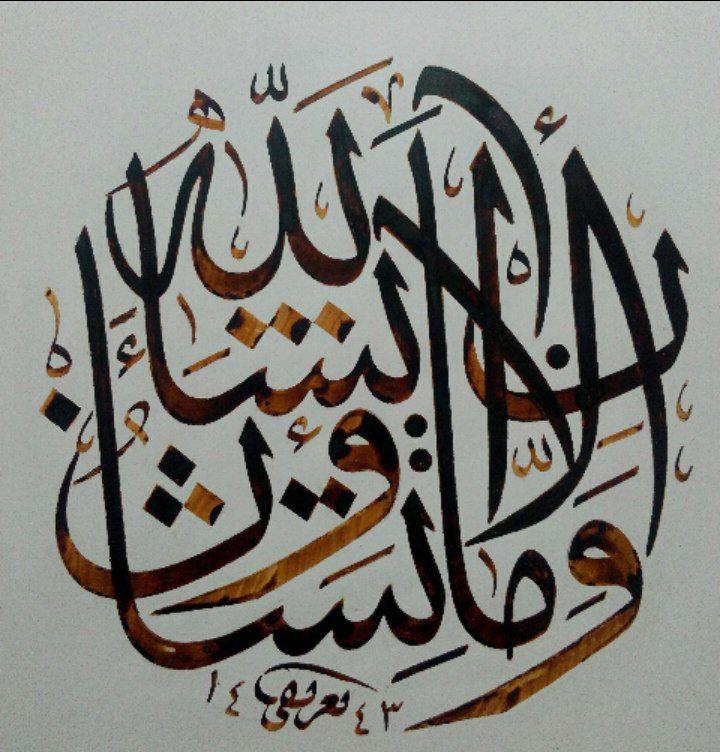 وَمَا تَشَاءُونَ إِلَّا أَنْ يَشَاءَ اللَّهُ
١٤٤٣